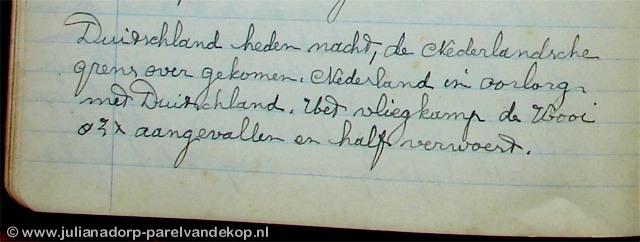 Duitschland heden nacht, de Nederlandsche
grens over gekomen. Nederland in oorlorg
met Duitschland. Het vliegkamp de Kooi
3x aangevallen en half verwoest.
© www.julianadorp-parelvandekop.nl